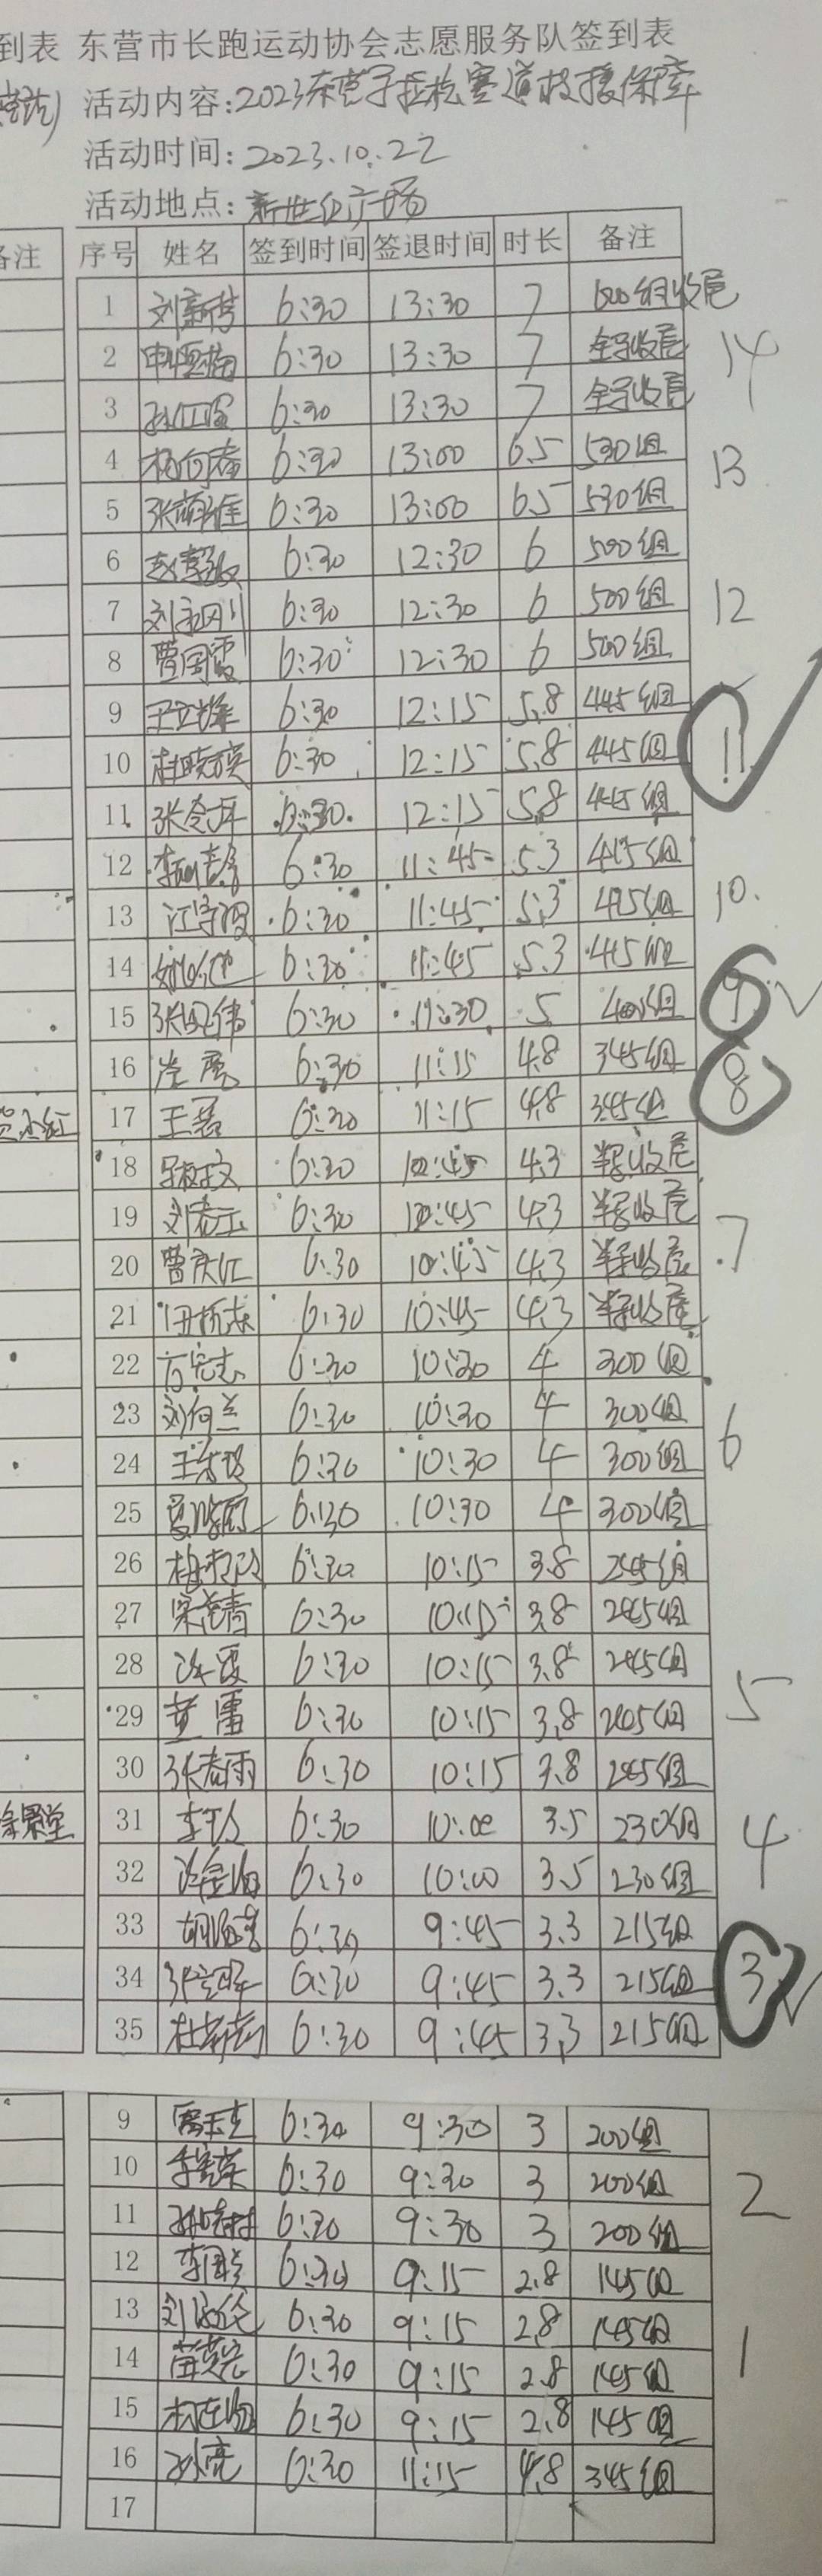 到表 东营市长跑运动协会志愿服务队签到表
活动内容:2023东营马拉松赛道救援保障
活动时间:2023.10.22
活动地点:新世纪广场
备注 序号 姓名 签到时间 签退时间 时长 备注
1 刘新 6:30 13:30 7 600组收尾
2 申 6:30 13:30 7 全马收尾
3 孙红 6:30 13:30 7 全马收尾
14
4 杨向春 6:30 13:00 6.5 530组
13
5 张 6:30 13:00 6.5 530组
6 赵 6:30 12:30 6 500组
7 刘 6:30 12:30 6 500组
12
8 曹国霞 6:30 12:30 6 500组
9 王立 6:30 12:15 5.8 445组
10 杜晓英 6:30 12:15 5.8 445组
11
11 张 6:30 12:15 5.8 445组
12 李 6:30 11:45 5.3 415组
13 江 6:30 11:45 5.3 415组
10.
14 6:30 11:45 5.3 415组
15 张国伟 6:30 11:30 5 400组
9
16 6:30 11:15 4.8 345组
8
贺小红 17 王磊 6:30 11:15 4.8 345组
18 6:30 10:45 4.3 半马收尾
19 刘志玉 6:30 10:45 4.3 半马收尾
20 曹庆红 6:30 10:45 4.3 半马收尾
7
21 6:30 10:45 4.3 半马收尾
22 6:30 10:30 4 300组
23 刘向兰 6:30 10:30 4 300组
24 王 6:30 10:30 4 300组
6
25 6:30 10:30 4 300组
26 6:30 10:15 3.8 245组
27 宋 青 6:30 10:15 3.8 245组
28 许霞 6:30 10:15 3.8 245组
29 黄雷 6:30 10:15 3.8 245组
5
30 张春雨 6:30 10:15 3.8 245组
徐景堂 31 李 6:30 10:00 3.5 230组
4
32 许金 6:30 10:00 3.5 230组
33 胡 6:30 9:45 3.3 215组
34 张 6:30 9:45 3.3 215组
3
35 杜 6:30 9:45 3.3 215组
9 6:30 9:30 3 200组
10 李 荣 6:30 9:30 3 200组
2
11 孙 6:30 9:30 3 200组
12 李国 6:30 9:15 2.8 145组
13 刘 6:30 9:15 2.8 145组
14 6:30 9:15 2.8 145组
1
15 6:30 9:15 2.8 145组
16 孙亮 6:30 11:15 4.8 345组
17